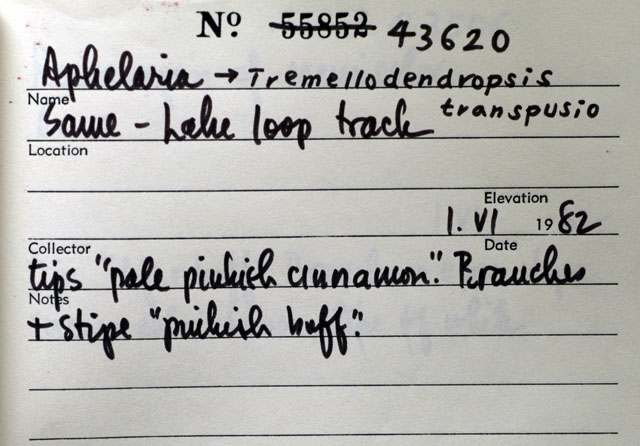 Nº 55852 43620
Aphelaria → Tremellodendropsis
Name
transpusio
Same - Lake loop track
Location
Elevation
1. VI 1982
Collector
Date
tips "pale pinkish cinnamon". Branches
Notes
+ stipe "pinkish buff".